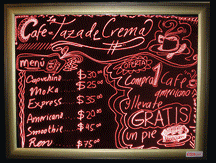 Cafe-Taza de Crema
menú
Capuchino $30
Moka $25
Express $35
Americano $20
Smoothie $45
Ron $75
Compra 1 Café
americano
llevate
GRATIS
un pie